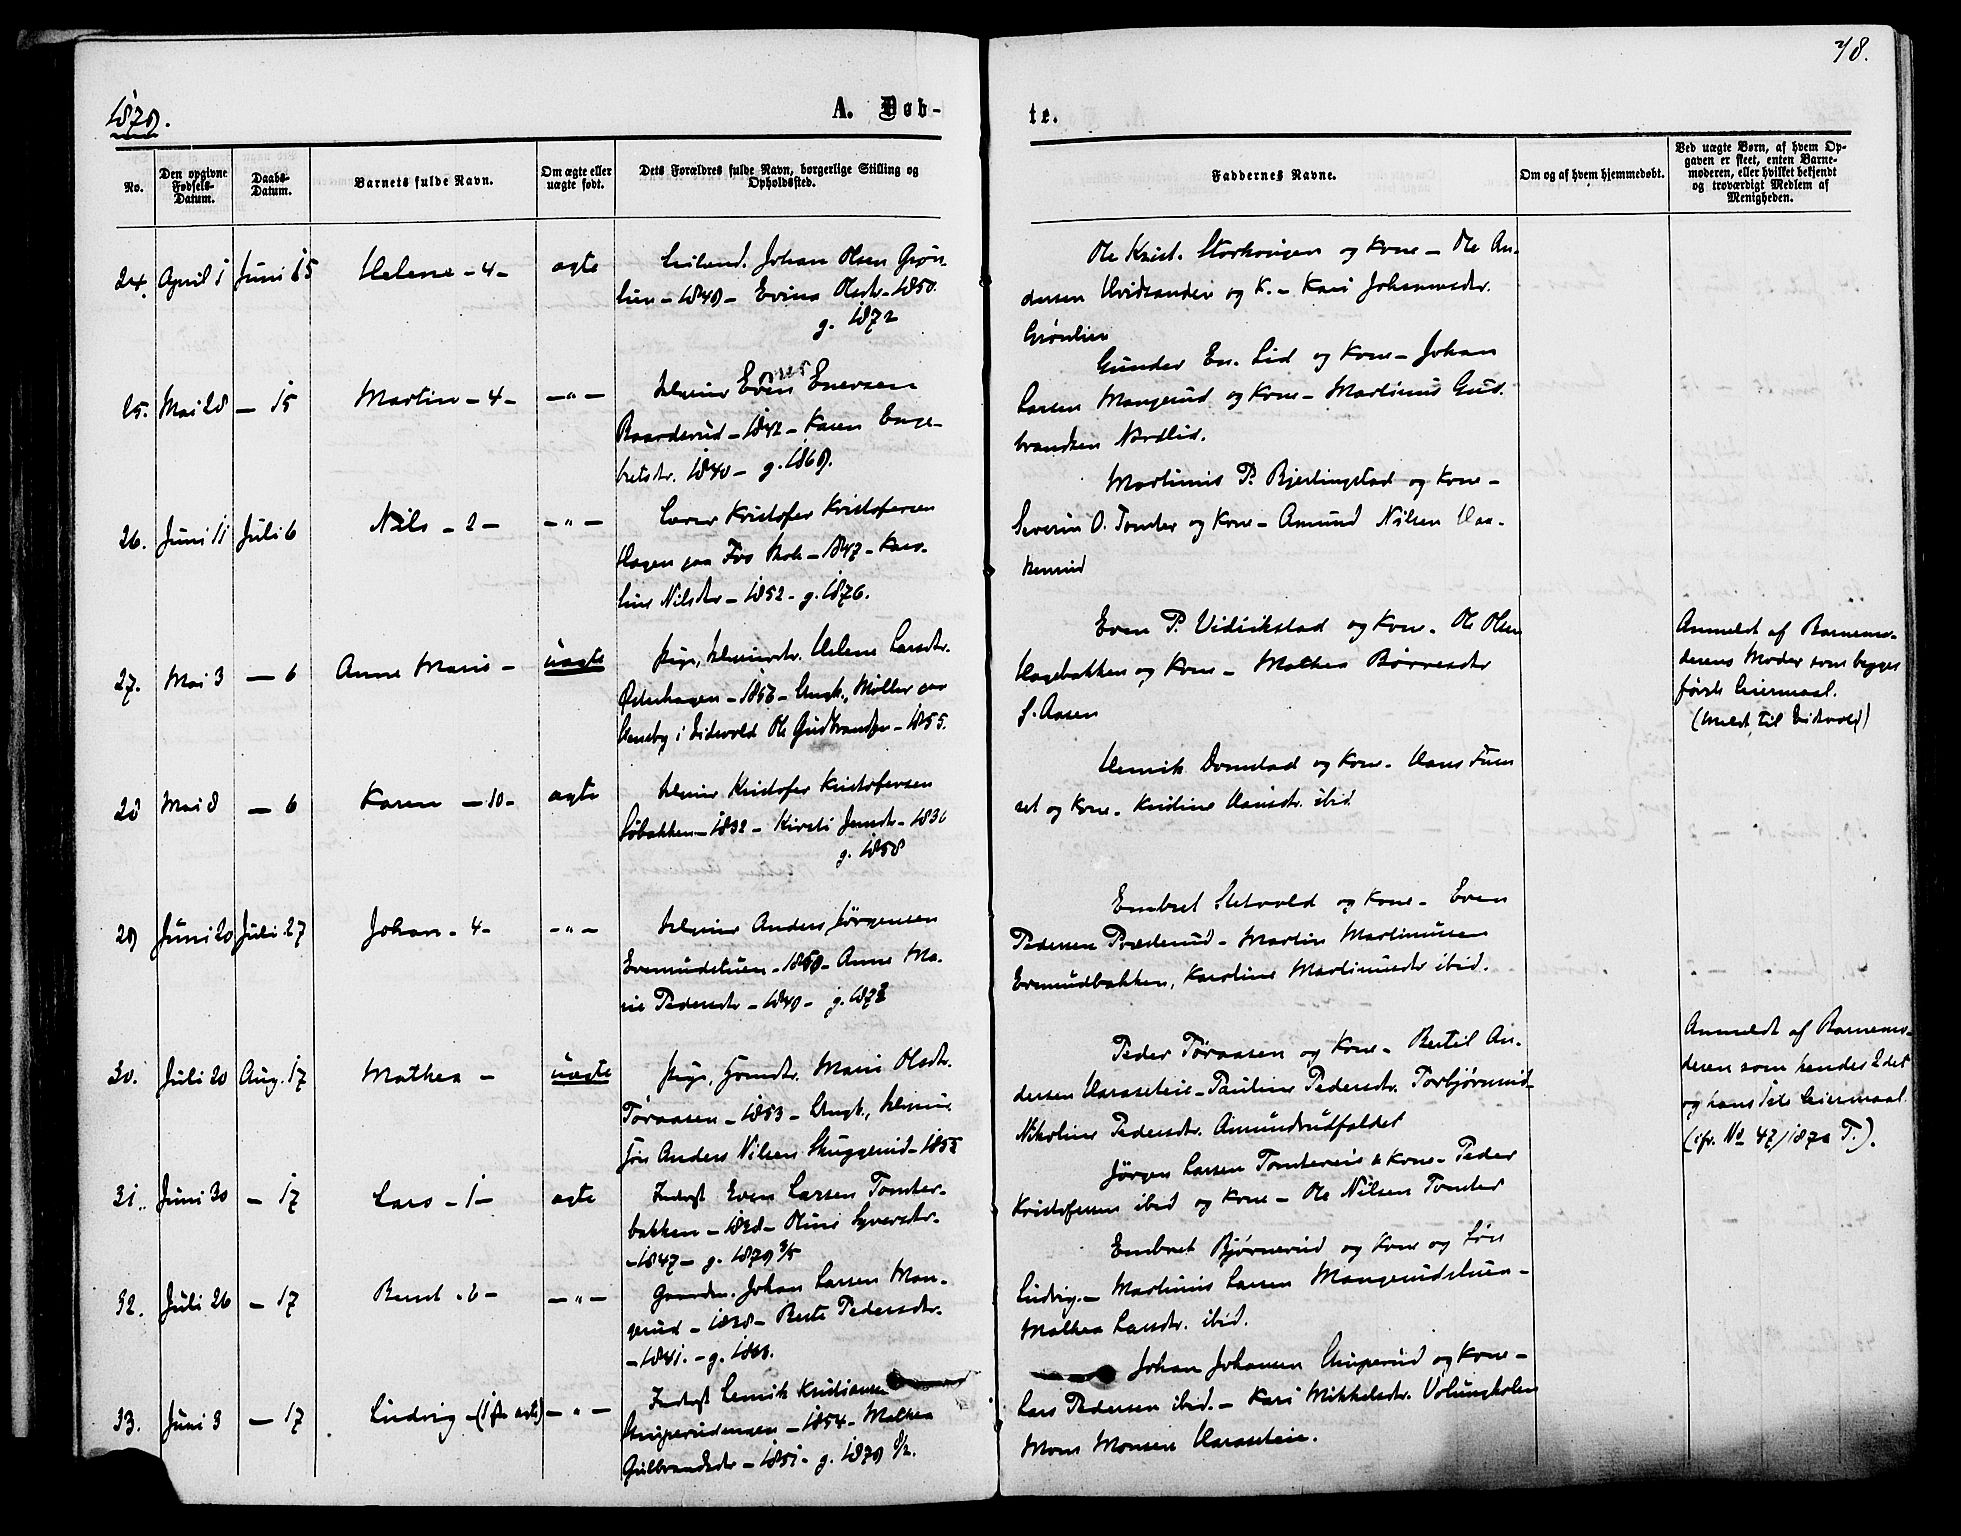 48.
1879.
A. Døb-
te.
No.
Den opgivne Fødsels-Datum.
Daabs-Datum.
Barnets fulde Navn.
Om ægte eller uægte født.
Dets Forældres fulde Navn, borgerlige Stilling og Opholdssted.
Faddernes Navne.
Om og af hvem hjemmedøbt.
Ved uægte Børn, af hvem Op-
gaven er skeet, enten Barne-
moderen, eller hvilket bekjendt
og troværdigt Medlem af
Menigheden.
24. April 1 Juni 15 Helene - 4 - ægte
Johan Olsen Grøn-
lien - 1849 - Evina Olsdtr. - 1850.
g. 1872
Ole Krist. Storhougen og Kone - Ole An-
dersen Hvidsanden og K. - Kari Johannesdtr.
Grønlien
25. Mai 28 - 15 Martin - 4 - - " -
Husm. Even Evensen
Baarderud - 1842 - Karen Enge-
bretsdtr. 1840 - g. 1869.
Gunder En. Lid og Kone - Johan
Larsen Mangerud og Kone - Martinus Gud-
brandsen Nordlid.
26. Juni 11 Juli 6 Nils - 2 - - " -
Lærer Kristofer Kristofersen
Hagen paa Fro Skole - 1847 - Karo-
line Nilsdtr - 1852 - g. 1876.
Martinus P. Bjertingstad og Kone -
Severin O. Tomter og Kone - Amund Nilsen Haa-
kenrud
27. Mai 3 - 6 Anne Marie - uægte
Pige, Husmdtr. Helene Larsdtr.
Østenhagen - 1856 - Ungk., Møller paa
i Eidsvold Ole Gudbrandsen - 1855.
Even P. Vidikstad og Kone. Ole Olsen
Hagebakken og Kone - Mathea Børresdtr
S. Aasen
Anmeldt af Barnemo-
derens Moder som begges
første Leiermaal.
(Meldt til Eidsvold)
28 Mai 8 - 6 Karen - 10 - ægte
Husm. Kristofer Kristofersen
Søbakken - 1832 - Kirsti Jensdtr - 1836
g. 1858
Henrik Domstad og Kone. Hans Furu-
set og Kone. Kristine Hansdtr. ibid
29 Juni 20 Juli 27 Johan - 4 - - " -
Husm. Anders Jørgensen
Evenrudstuen - 1850 - Anne Ma-
rie Pedersdtr - 1849 - g. 1873
Embret Sletvold og Kone - Even
Pedersen Præsterud - Martin Martinussen
Evenrudbakken, Karoline Martinusdtr ibid.
30. Juli 20 Aug. 17 Mathea - uægte
Pige, Gaardmdtr. Marie Olsdtr.
Tøraasen - 1853 - Ungk., Husm.
Søn Anders Nilsen Skuggerud - 1855
Peder Tøraasen og Kone - Bertil An-
dersen Haraseteie - Pauline Pedersdtr. Torbjørnrud
Nikoline Pedersdtr. Amundrudfaldet
Anmeldt af Barnemo-
deren som hendes 2det
og hans 1ste Leiermaal.
(cfr. No 47/1870 T.).
31. Juni 30 - 17 Lars - 1 - ægte
Inderst Even Larsen Tomter-
bakken - 1828 - Oline Syversdtr.
- 1847 - g. 1879 3/5
Jørgen Larsen Tomtereie & Kone - Peder
Kristofersen ibid og Kone - Ole Nilsen Tomter
32. Juli 26 - 17 Bernt - 6 - - " -
Gaardm. Johan Larsen Man-
gerud - 1838 - Berte Pedersdtr.
- 1841. - g. 1868.
Embret Bjørnerud og Kone og Søn
Ludvig. - Martinus Larsen Mangerudstuen -
Mathea Larsdtr. ibid.
33. Juni 3 - 17 Ludvig - (1ste ægte) - " -
Inderst Henrik Kristiansen
- 1854 - Mathea
Gulbrandsdtr - 1851 - g. 1879 8/2.
Johan Johansen Ungerud og Kone -
Lars Pedersen ibid. - Kari Mikkelsdtr. Volungholen
Mons Monsen Haraseteie.